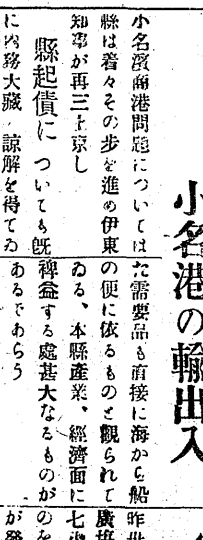 小名港の輸出入
小名濱商港問題については
縣は着々その歩を進め伊東
知事が再三上京し
縣起債についても既
に内務大藏諒解を得てゐ
た需要品も直接に海から船
の便に依るものと觀られて
ゐる、本縣産業、經濟面に
裨益する處甚大なるものが
あるであらう